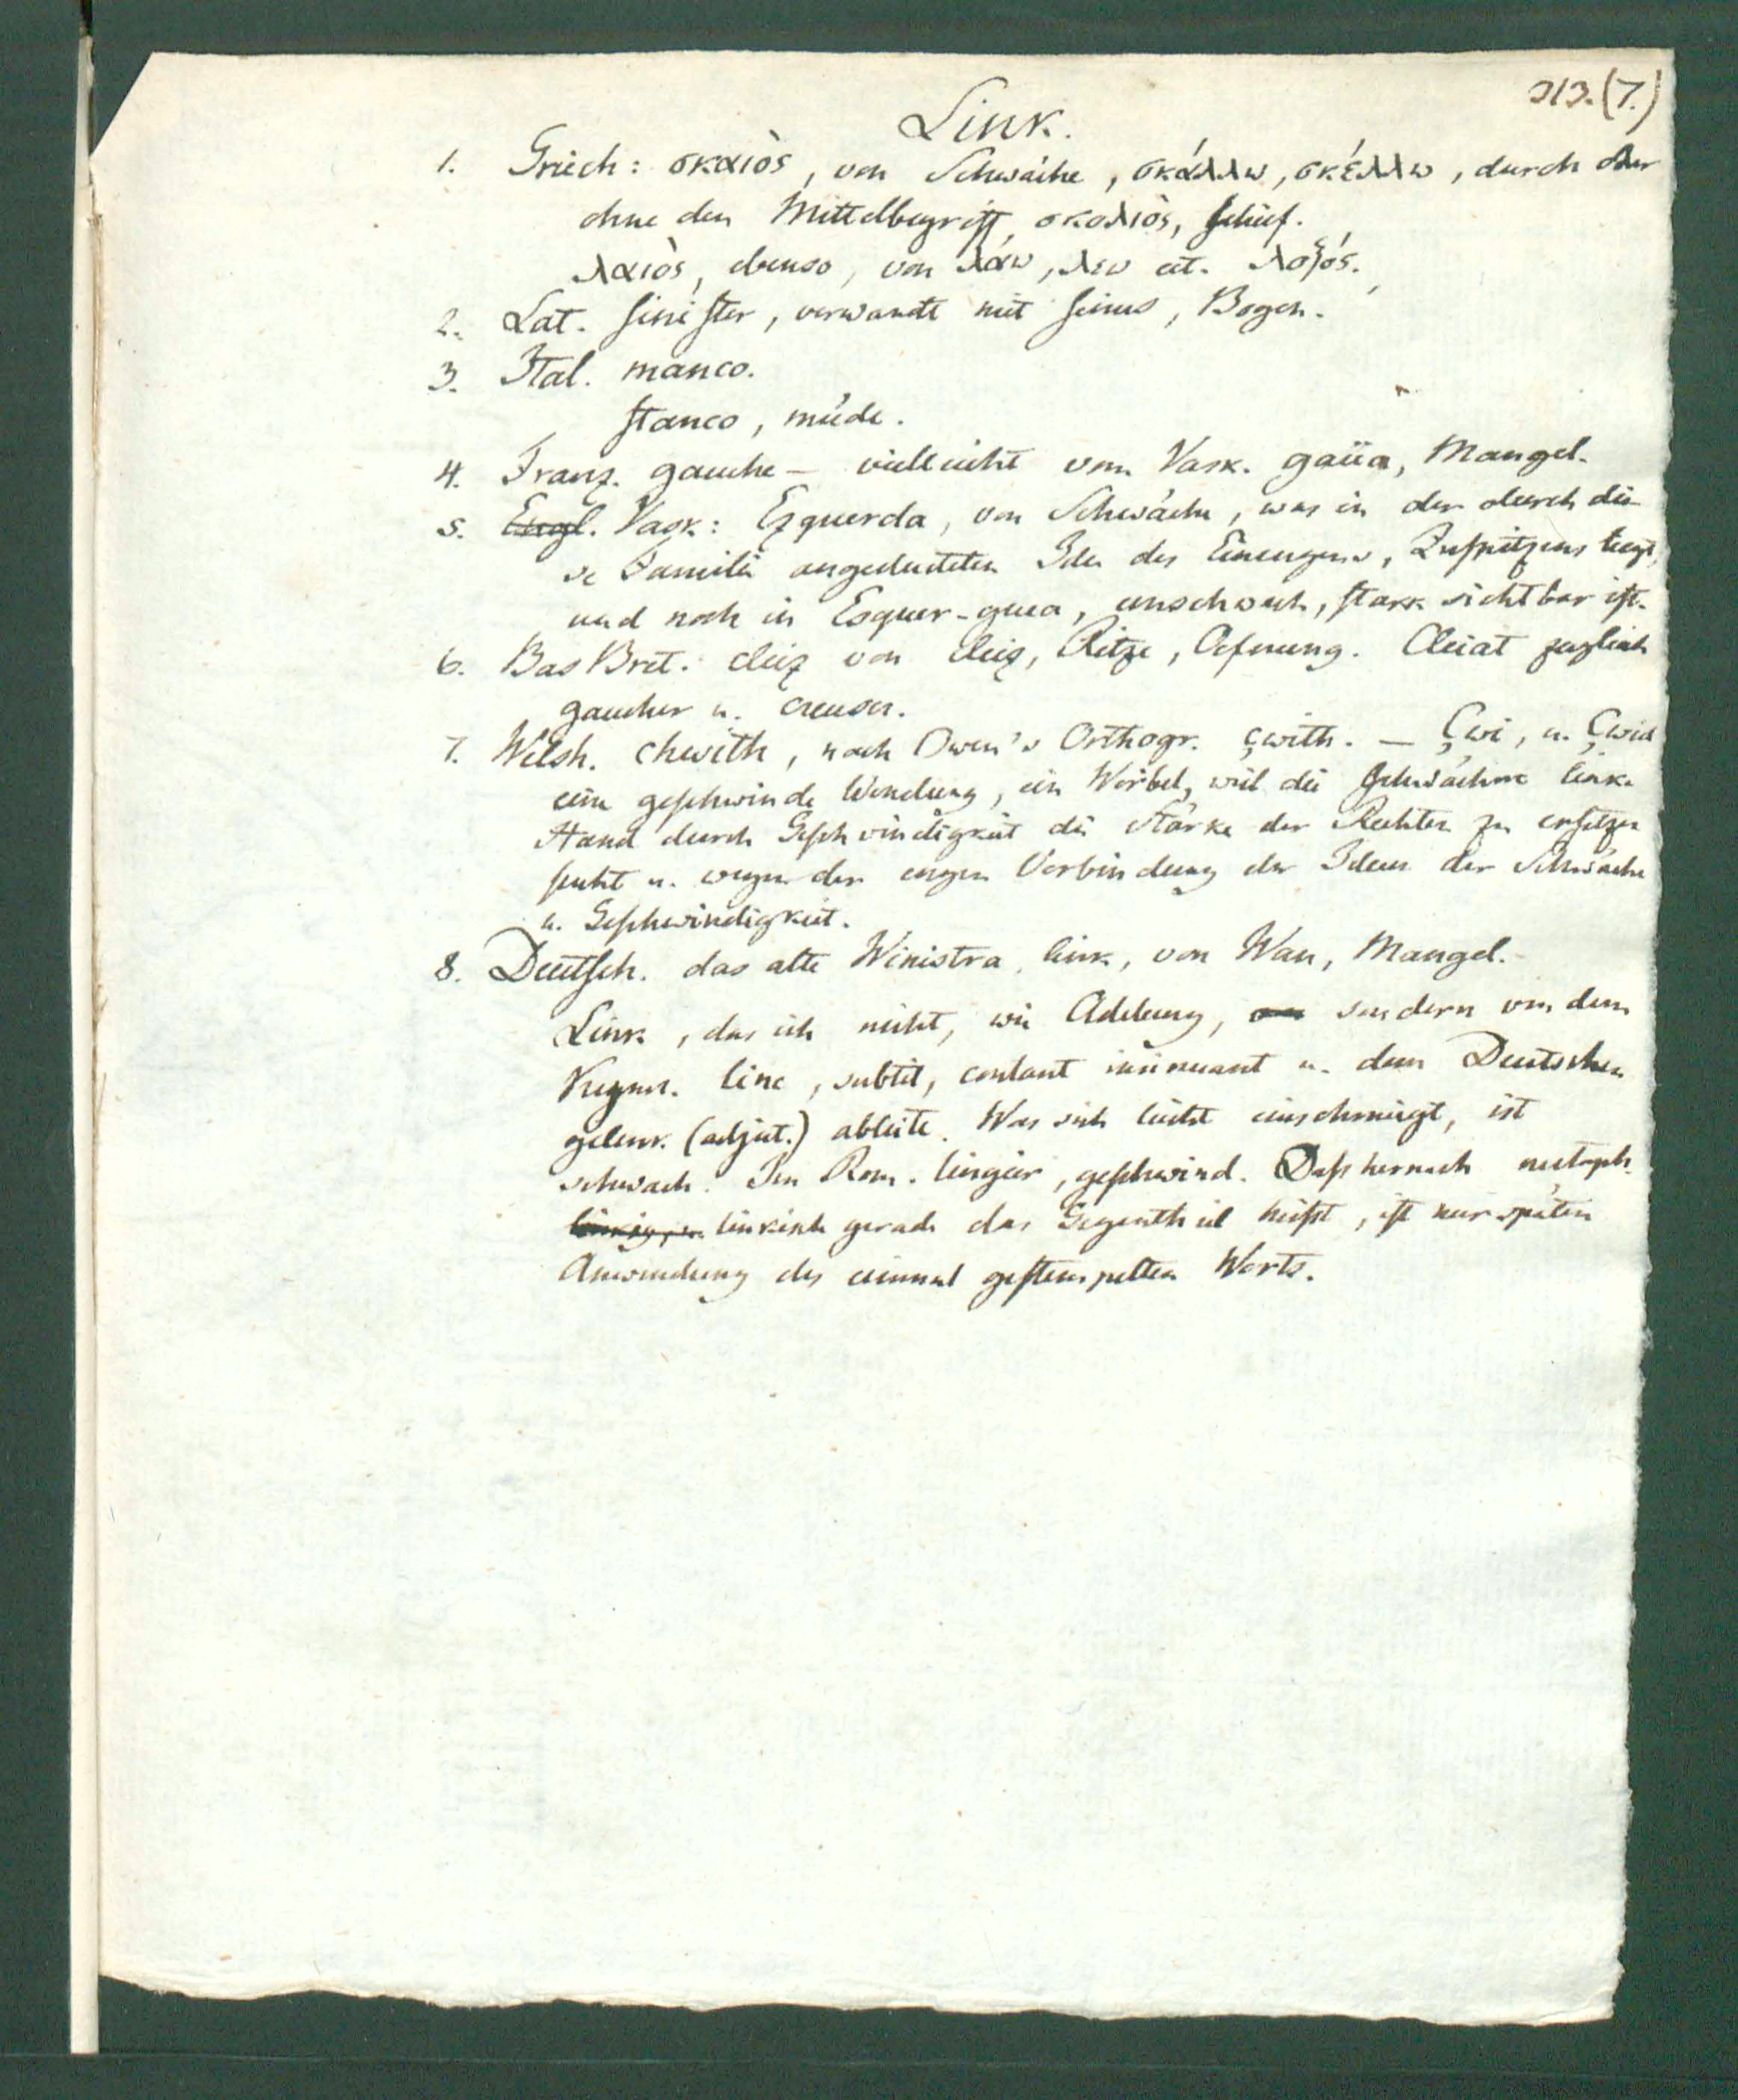 313.(7.)
Link.
1. Griech: σκαιὸς, von Schwäche, σκάλλω, σκέλλω, durch oder
ohne den Mittelbegriff, σκολιὸς, schief.
λαιὸς, ebenso, von λάω, λεω cet. λοξός.
2. Lat. sinister, verwandt mit sinus, Bogen.
3. Ital. manco.
stanco, müde.
4. Franz. gauche – vielleicht vom Vask. gaüa, Mangel.
5. Engl. Vask: Ezquerda, von Schwäche, was in der durch die-
se Familie angedeuteten Idee des Einengens, Zuspitzens liegt,
und noch in Esquer-guea, unschwach, stark sichtbar ist.
6. Bas Bret. cleiz von cleiz, Ritze, Oefnung. Cleiat zugleich
gaucher u. creuser.
7. Welsh. chwith, nach Owen's Orthogr. çwith. – Çwi, u. Çwid
eine geschwinde Wendung, ein Wirbel, weil die schwächere linke
Hand durch Geschwindigkeit die Stärke der Rechten zu ersetzen
sucht u. wegen der engen Verbindung der Ideen der Schwäche
u. Geschwindigkeit.
8. Deutsch. das alte Winistra, link, von Wan, Mangel.
Link, das ich nicht, wie Adelung, sondern von dem
Kymr. linc, subtil, insinuant u. dem Deutschen
gelenk (adject.) ableite. Was sich leicht einschmiegt, ist
schwach. Im Rom. lingier, geschwind. Daß hernach metaph.
linkisch gerade das Gegentheil heißt, ist nur spätere
Anwendung des einmal gestempelten Worts.